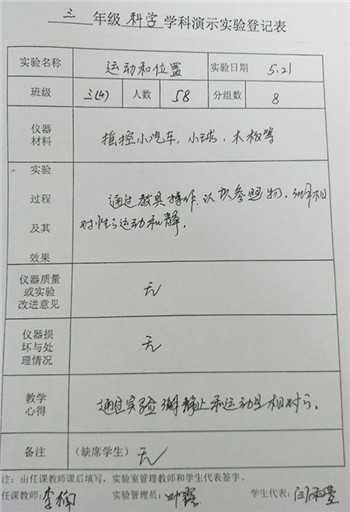 三 年级 科学 学科演示实验登记表
实验名称 运动和位置 实验日期 5.21
班级 三(4) 人数 58 分组数 8
仪器
材料 摇控小汽车、小球、木板等
实验
过程 通过教具操作,认识参照物,
及其 对性与运动和静。
效果
仪器质量
或实验 无
改进意见
仪器损
坏与处 无
理情况
教学
心得 通过实验理解静止和运动是相对的。
备注 (缺席学生) 无
注:由任课教师课后填写,实验室管理教师和学生代表签字。
任课教师: 实验管理员: 学生代表: